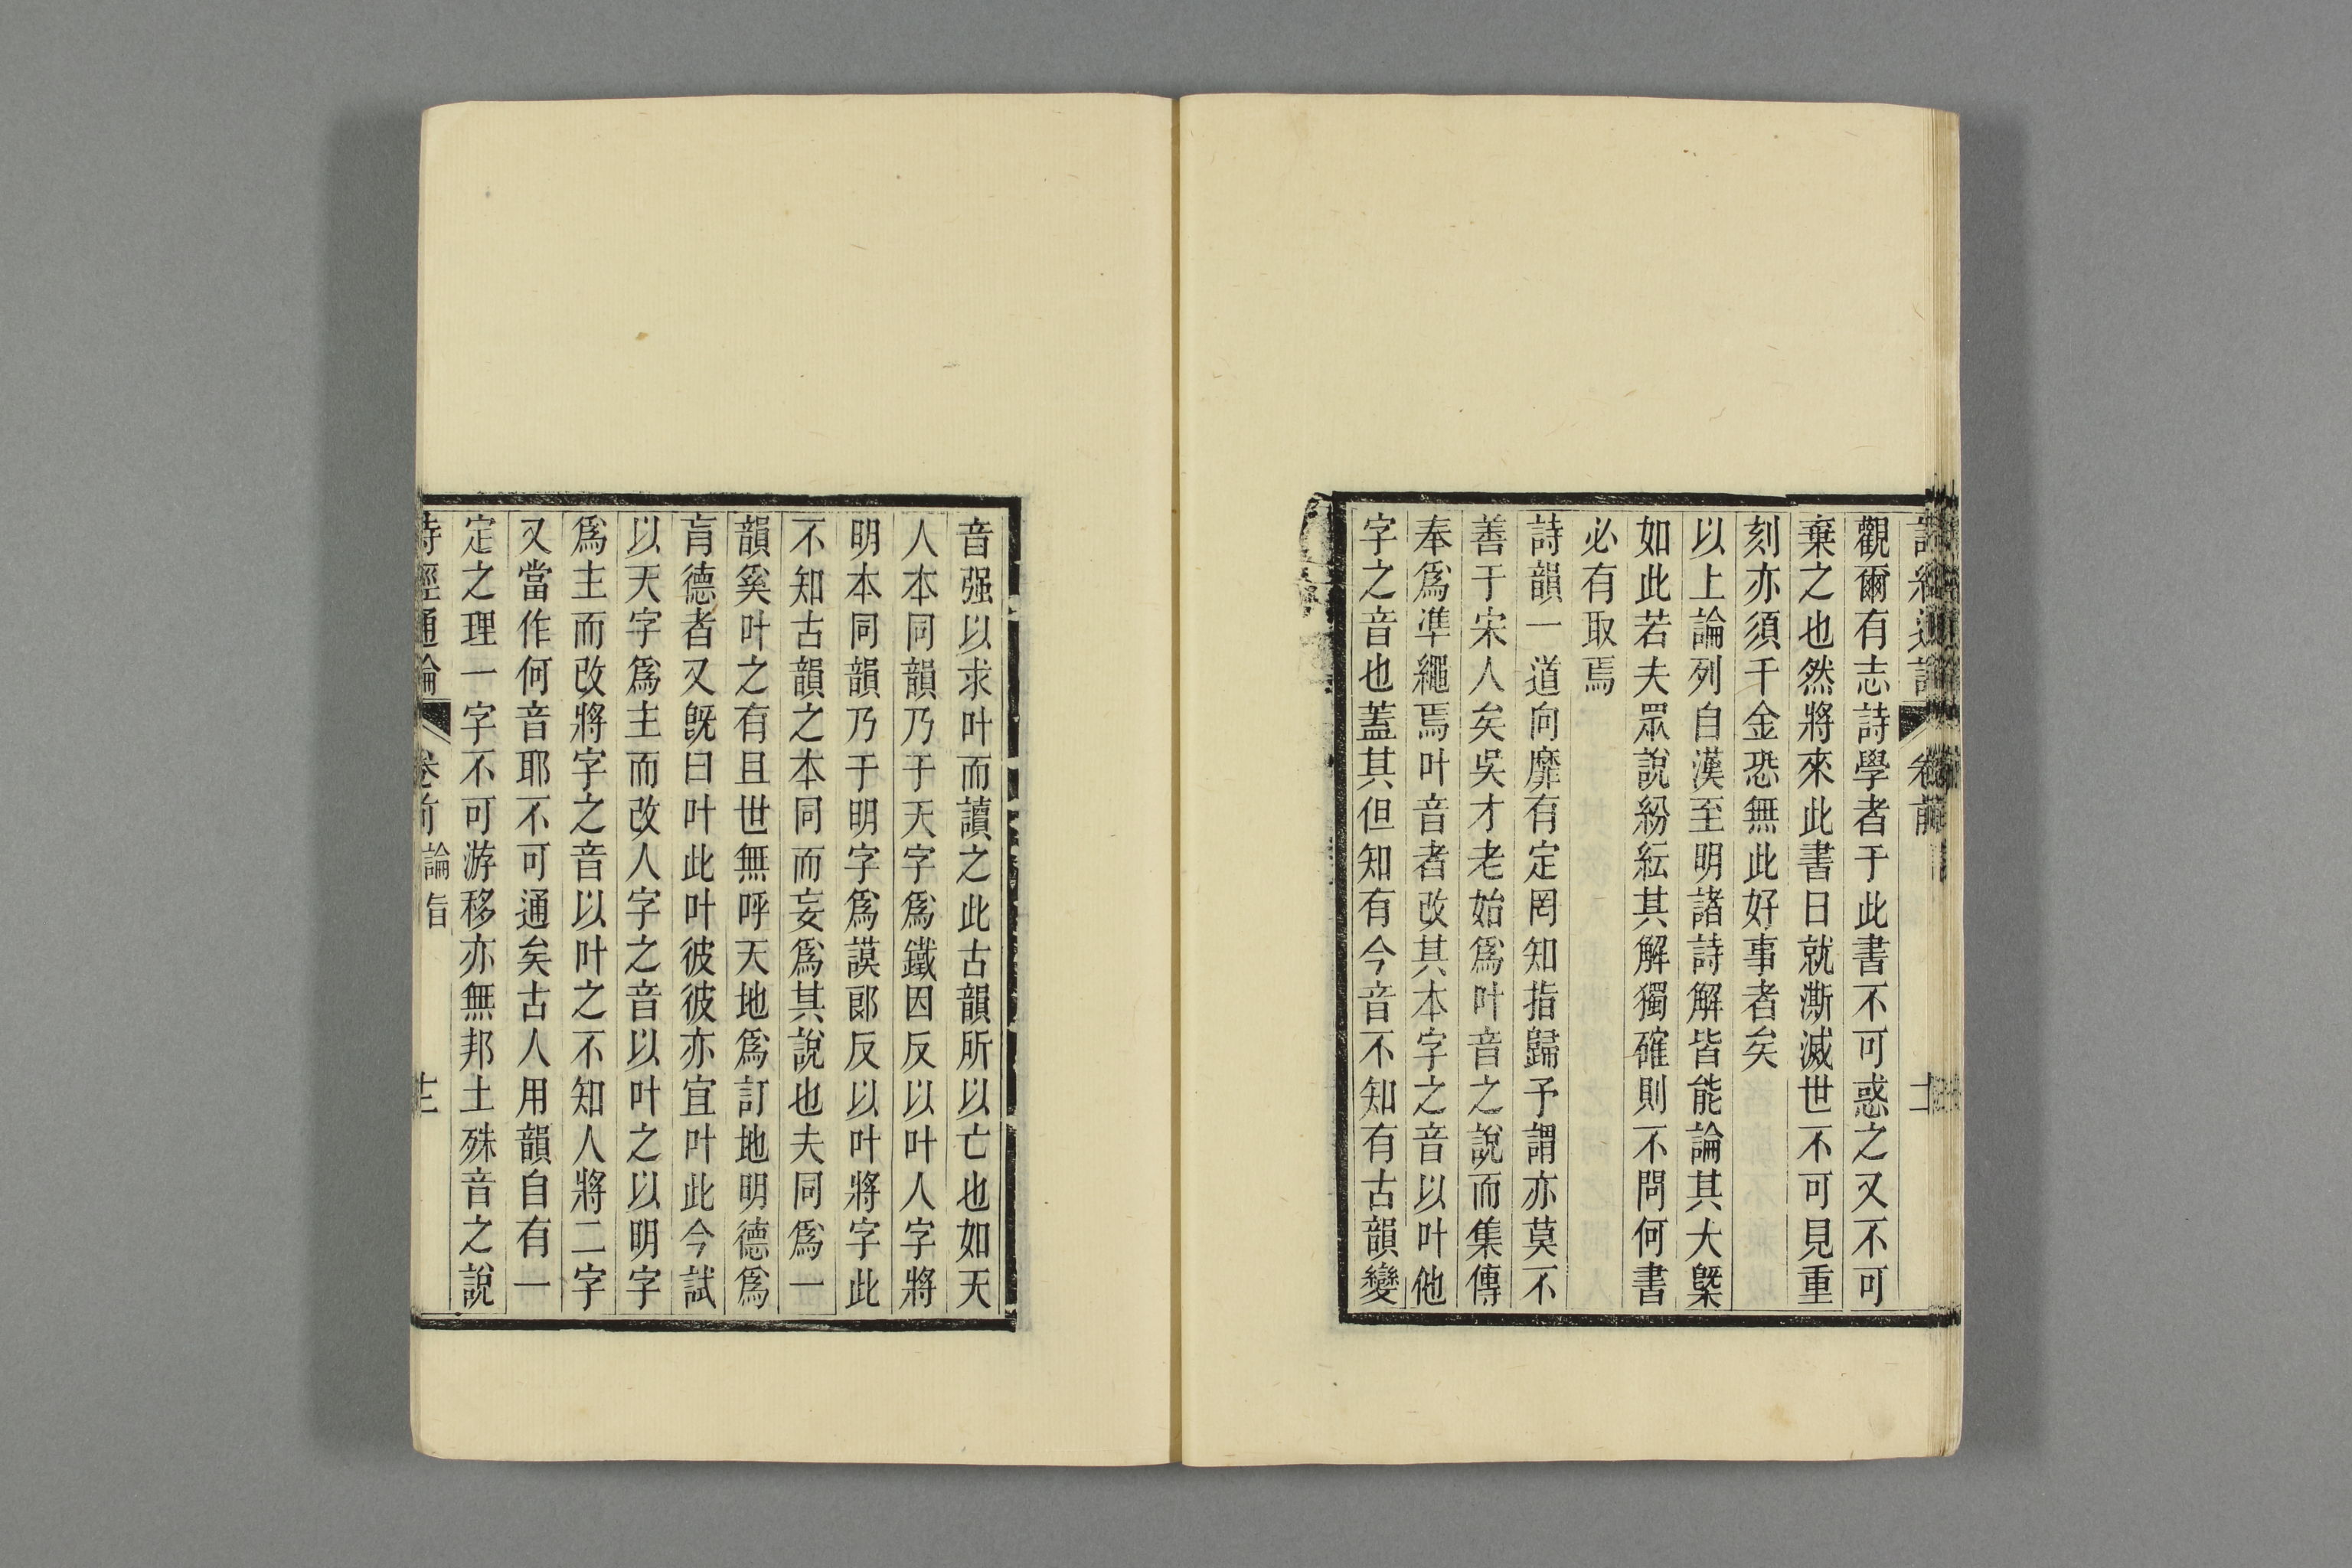 觀爾有志詩學者于此書不可惑之又不可
棄之也然將來此書日就澌滅世不可見重
刻亦須千金恐無此好事者矣
以上論列自漢至明諸詩解皆能論其大槩
如此若夫眾說紛紜其解獨確則不問何書
必有取焉
詩韻一道向靡有定罔知指歸予謂亦莫不
善于宋人矣吳才老始爲叶音之說而集傳
奉爲準繩焉叶音者改其本字之音以叶他
字之音也蓋其但知有今音不知有古韻變
音强以求叶而讀之此古韻所以亡也如天
人本同韻乃于天字爲鐵因反以叶人字將
明本同韻乃于明字爲謨郎反以叶將字此
不知古韻之本同而妄爲其說也夫同爲一
韻奚叶之有且世無呼天地爲訂地明德爲
肓德者又旣曰叶此叶彼彼亦宜叶此今試
以天字爲主而改人字之音以叶之以明字
爲主而改將字之音以叶之不知人將二字
又當作何音耶不可通矣古人用韻自有一
定之理一字不可游移亦無邦土殊音之說
詩經通論 卷前 論旨